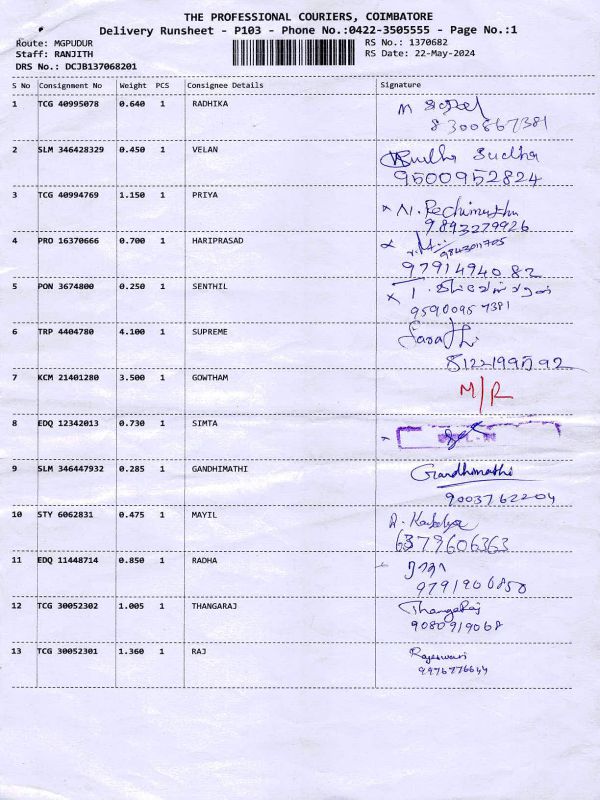 THE PROFESSIONAL COURIERS, COIMBATORE
Delivery Runsheet - P103 - Phone No.:0422-3505555 - Page No.:1
Route: MGPUDUR RS No.: 1370682
Staff: RANJITH RS Date: 22-May-2024
DRS No.: DCJB137068201
S No Consignment No Weight PCS Consignee Details Signature
1 TCG 40995078 0.640 1 RADHIKA
8300867381
2 SLM 346428329 0.450 1 VELAN Sudha
9500952824
3 TCG 40994769 1.150 1 PRIYA
9893279926
4 PRO 16370666 0.700 1 HARIPRASAD
9791494082
5 PON 3674800 0.250 1 SENTHIL
9590095 7381
6 TRP 4404780 4.100 1 SUPREME
8122199592
7 KCM 21401280 3.500 1 GOWTHAM M/R
8 EDQ 12342013 0.730 1 SIMTA
9 SLM 346447932 0.285 1 GANDHIMATHI Gandhimathi
9003762204
10 STY 6062831 0.475 1 MAYIL
6379606363
11 EDQ 11448714 0.850 1 RADHA ராதா
9791906850
12 TCG 30052302 1.005 1 THANGARAJ Thangaraj
9080919068
13 TCG 30052301 1.360 1 RAJ Rajeswari
9976776644